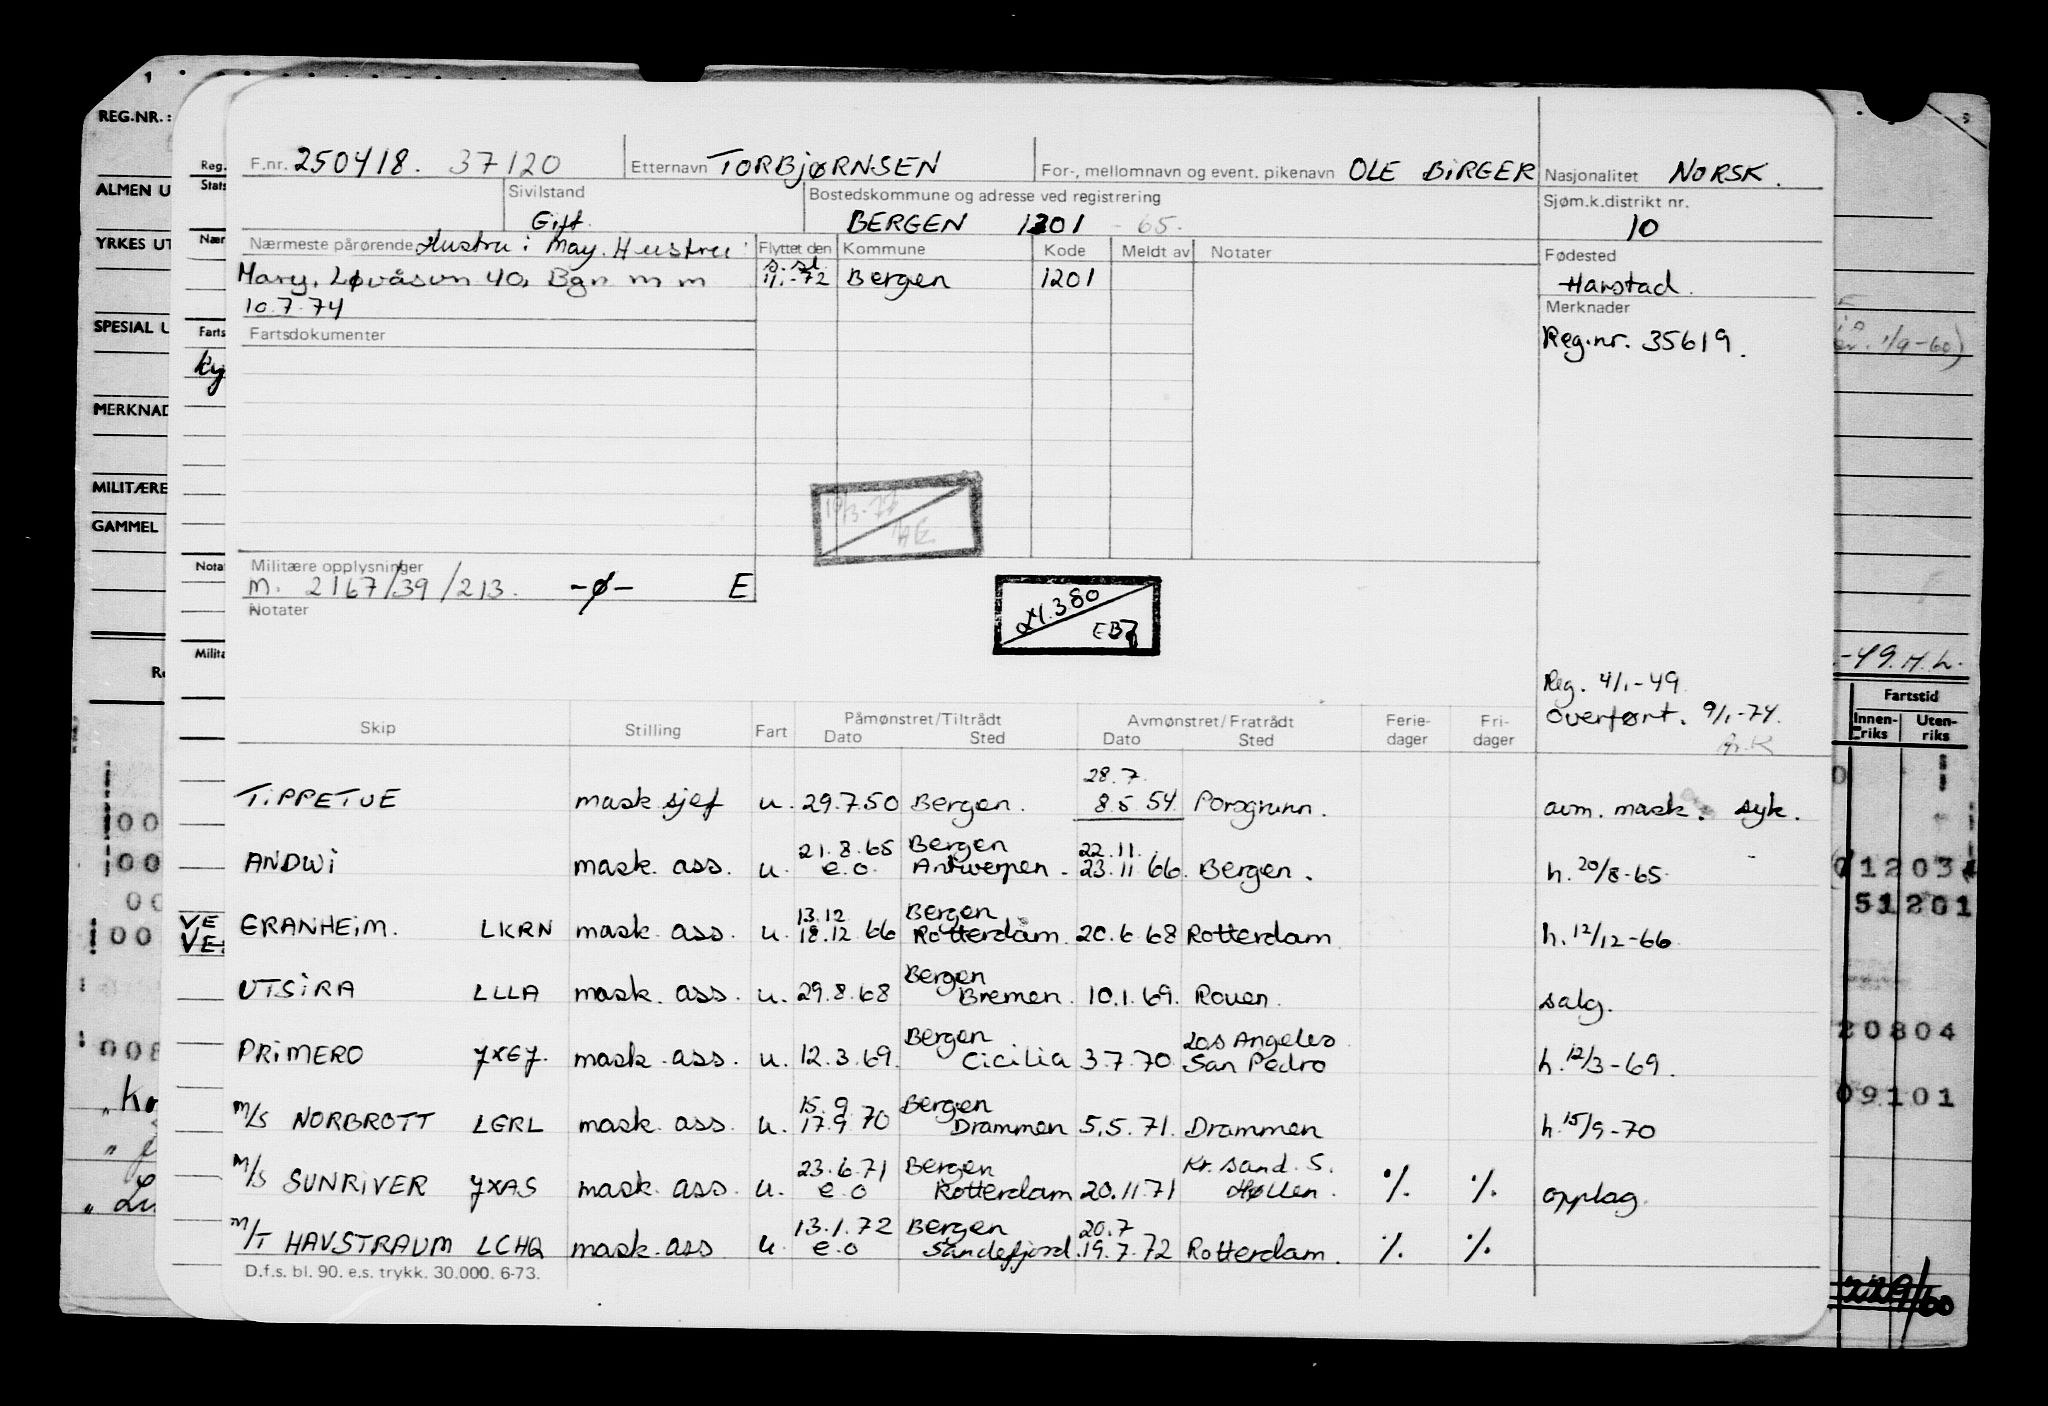 REG.NR.:
ALMEN U
YRKES UT
SPESIAL U
MERKNAD
MILITÆRE
GAMMEL
Reg.
Stats
Nær
Farts
Ky
Nota
Milita
F.nr. 250418. 37120 Etternavn TORBJØRNSEN For-, mellomnavn og event. pikenavn OLE BIRGER Nasjonalitet NORSK.
Sivilstand Bostedskommune og adresse ved registrering Sjøm.k.distrikt nr.
Gift. BERGEN 1201 - 65. 10
Nærmeste pårørende Hustru: May. Hustru: Flyttet den Kommune Kode Meldt av Notater Fødested
Mary, Løvåsvn 40, Bgn m m 11.-72 Bergen 1201 Harstad.
10.7.74 Merknader
Fartsdokumenter Reg.nr. 35619.
Militære opplysninger
M. 2167/39/213. -ø- E
Notater
21.380
EBJ
Reg. 4/1.-49
Overført. 9/1.-74.
Skip Stilling Fart Påmønstret/Tiltrådt Dato Sted Avmønstret/Fratrådt Dato Sted Ferie-dager Fri-dager
28.7.
TIPPETUE mask.sjef u. 29.7.50 Bergen. 8.5.54. Porsgrunn. avm. mask. syk.
21.8.65 Bergen 22.11.
ANDWI mask. ass. u. e.o. Antwerpen. 23.11.66. Bergen. h. 20/8-65.
13.12 Bergen
GRANHEIM. LKRN mask. ass. u. 18.12.66 Rotterdam. 20.6.68 Rotterdam h. 12/12-66.
Bergen
UTSIRA LLLA mask. ass. u. 29.8.68 Bremen. 10.1.69. Rouen. salg.
Bergen Los Angeles
PRIMERO JXGJ. mask. ass. u. 12.3.69. Cicilia 3.7.70. San Pedro h. 12/3-69.
15.9. Bergen
M/S NORBROTT LGRL mask. ass. u. 17.9.70 Drammen 5.5.71. Drammen h. 15/9-70
23.6.71 Bergen Kr. sand. S.
M/S SUNRIVER JXAS mask. ass. u. e.o Rotterdam 20.11.71 Høllen. % % opplag.
13.1.72 Bergen 20.7
M/T HAVSTRAUM LCHQ mask. ass u. e.o Sandefjord. 19.7.72 Rotterdam. % %
D.f.s. bl. 90. e.s. trykk. 30.000. 6-73.
-49. H. L.
Fartstid
Innen-riks Uten-riks
51201
20804
09101